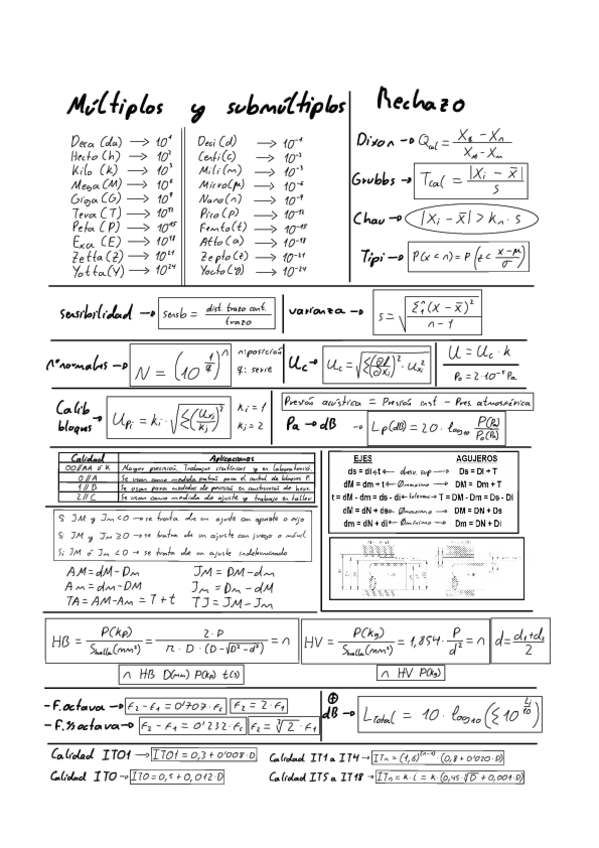 Múltiplos y submúltiplos
Rechazo
Deca (da) → 10¹
Hecto (h) → 10²
Kilo (k) → 10³
Mega (M) → 10⁶
Giga (G) → 10⁹
Tera (T) → 10¹²
Peta (P) → 10¹⁵
Exa (E) → 10¹⁸
Zetta (Z) → 10²¹
Yotta (Y) → 10²⁴
Deci (d) → 10⁻¹
Centi (c) → 10⁻²
Mili (m) → 10⁻³
Micro (μ) → 10⁻⁶
Nano (n) → 10⁻⁹
Pico (p) → 10⁻¹²
Femto (f) → 10⁻¹⁵
Atto (a) → 10⁻¹⁸
Zepto (z) → 10⁻²¹
Yocto (y) → 10⁻²⁴
Dixon → Qcal =
Grubbs → Tcal = |Xi - x̄| / s
Chau → |Xi - x̄| > kn · s
Tipi → P(x < n) = P(z < (x-μ)/σ)
sensibilidad → sensb = dist. trazo cont. / trazo
varianza → s = √(Σ(x - x̄)² / n-1)
nº normales → N = (10^(1/q))ⁿ n: posición q: serie
Uc → Uc = √(Σ(∂l/∂xi)² · Uxi²)
U = Uc · k
P₀ = 2·10⁻⁵ Pa
Calib bloques → Upi = ki · √(Σ(Uxj/kj)²) ki = 1 kj = 2
Presión acústica = Presión inst - Pres. atmosférica
Pa → dB → Lp(dB) = 20 · log₁₀ P(Pa)/P₀(Pa)
Calidad Aplicaciones
00//AA ó K Mayor precisión. Trabajos científicos y en laboratorio.
0//A Se usan como medida patrón para el control de bloques P.
1//B Se usan para medidas de precisión en construcción de herr.
2//C Se usan como medida de ajuste y trabajo en taller
EJES AGUJEROS
ds = di+t ← desv. sup → Ds = Di + T
dM = dm + t ← Ømaximo → DM = Dm + T
t = dM - dm = ds - di ← tolerancia → T = DM - Dm = Ds - Di
dM = dN + ds ← Ømaximo → DM = DN + Ds
dm = dN + di ← Ømínimo → Dm = DN + Di
Si JM y Jm < 0 → se trata de un ajuste con apriete o fijo
Si JM y Jm ≥ 0 → se trata de un ajuste con juego o móvil
Si JM ó Jm < 0 → se trata de un ajuste indeterminado
AM = dM - Dm JM = DM - dm
Am = dm - DM Jm = Dm - dM
TA = AM - Am = T + t TJ = JM - Jm
HB = P(kp) / Shuella(mm²) = 2·P / π·D·(D-√(D²-d²)) = n
HV = P(kg) / Shuella(mm²) = 1,854 · P/d² = n
d = (d₁+d₂)/2
n HB D(mm) P(kp) t(s)
n HV P(kg)
- F. octava → F₂ - F₁ = 0'707·Fc F₂ = 2·F₁
- F. ⅓ octava → F₂ - F₁ = 0'232·Fc F₂ = ∛2 · F₁
⊕
dB → Ltotal = 10 · log₁₀ (Σ10^(Li/10))
Calidad IT01 → IT01 = 0,3 + 0'008·D
Calidad IT1 a IT4 → ITn = (1,6)⁽ⁿ⁻¹⁾ · (0,8 + 0'020·D)
Calidad IT0 → IT0 = 0,5 + 0,012·D
Calidad IT5 a IT18 → ITn = k·i = k·(0,45·∛D + 0,001·D)